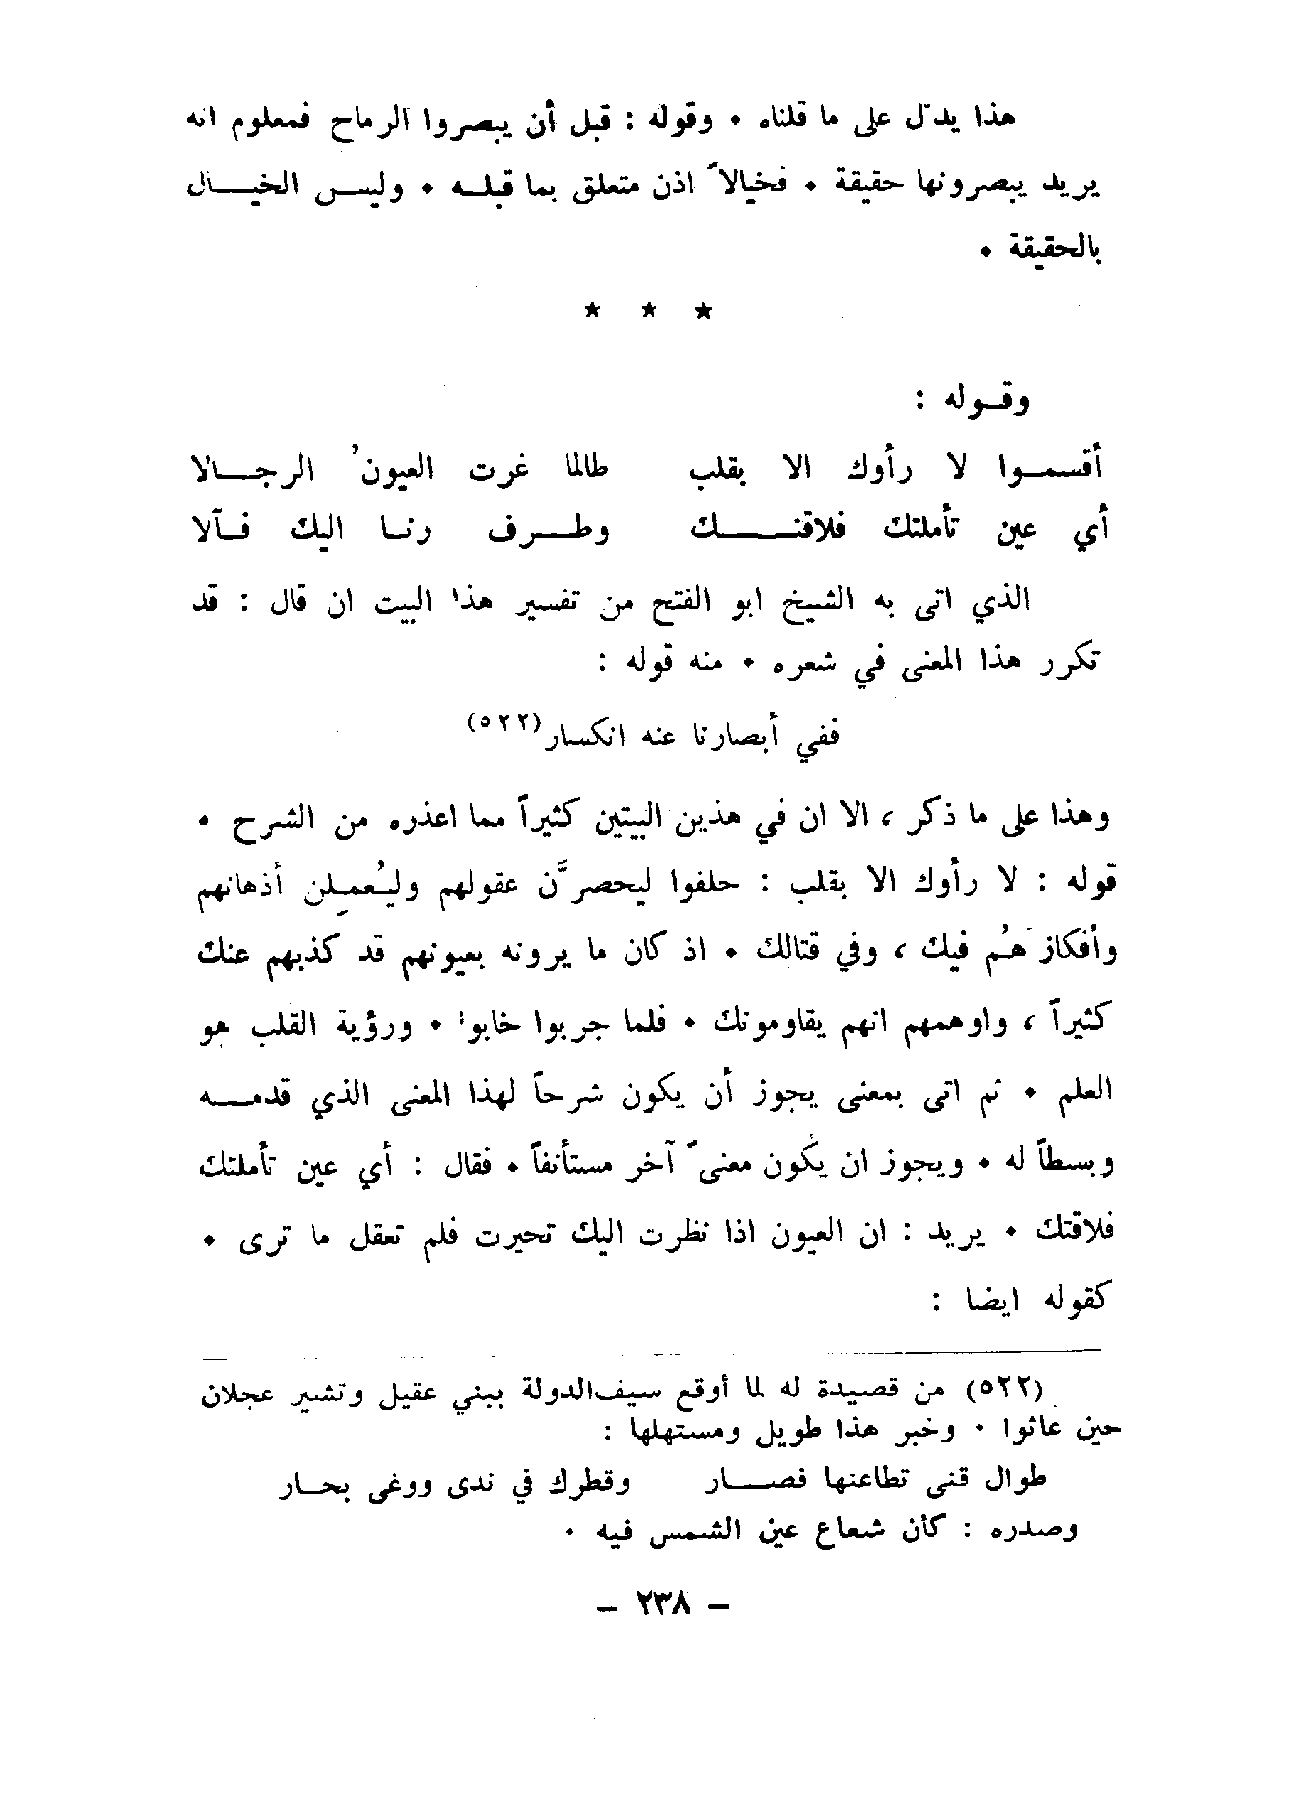 هذا يدلّ على ما قلناه • وقوله : قبل أن يبصروا الرماح فمعلوم انه
يريد يبصرونها حقيقة • فخيالاً اذن متعلق بما قبله • وليس الخيال
بالحقيقة •
★ ★ ★
وقوله :
أقسموا لا رأوك الا بقلب طالما غرت العيونُ الرجالا
أي عين تأملتك فلاقتك وطرف رنا اليك فآلا
الذي اتى به الشيخ ابو الفتح من تفسير هذا البيت ان قال : قد
تكرر هذا المعنى في شعره • منه قوله :
ففي أبصارنا عنه انكسار(٥٢٢)
وهذا على ما ذكر ، الا ان في هذين البيتين كثيراً مما اعذره من الشرح •
قوله : لا رأوك الا بقلب : حلفوا ليحصرَّن عقولهم وليُعملن أذهانهم
وأفكازهُم فيك ، وفي قتالك • اذ كان ما يرونه بعيونهم قد كذبهم عنك
كثيراً ، واوهمهم انهم يقاومونك • فلما جربوا خابوا • ورؤية القلب هو
العلم • ثم اتى بمعنى يجوز أن يكون شرحاً لهذا المعنى الذي قدمه
وبسطاً له • ويجوز ان يكون معنىً آخر مستأنفاً • فقال : أي عين تأملتك
فلاقتك • يريد : ان العيون اذا نظرت اليك تحيرت فلم تعقل ما ترى •
كقوله ايضا :
(٥٢٢) من قصيدة له لما أوقع سيف‌الدولة ببني عقيل وتشير عجلان
حين عاثوا • وخبر هذا طويل ومستهلها :
طوال قنى تطاعنها قصار وقطرك في ندى ووغى بحار
وصدره : كأن شعاع عين الشمس فيه •
– ٢٣٨ –